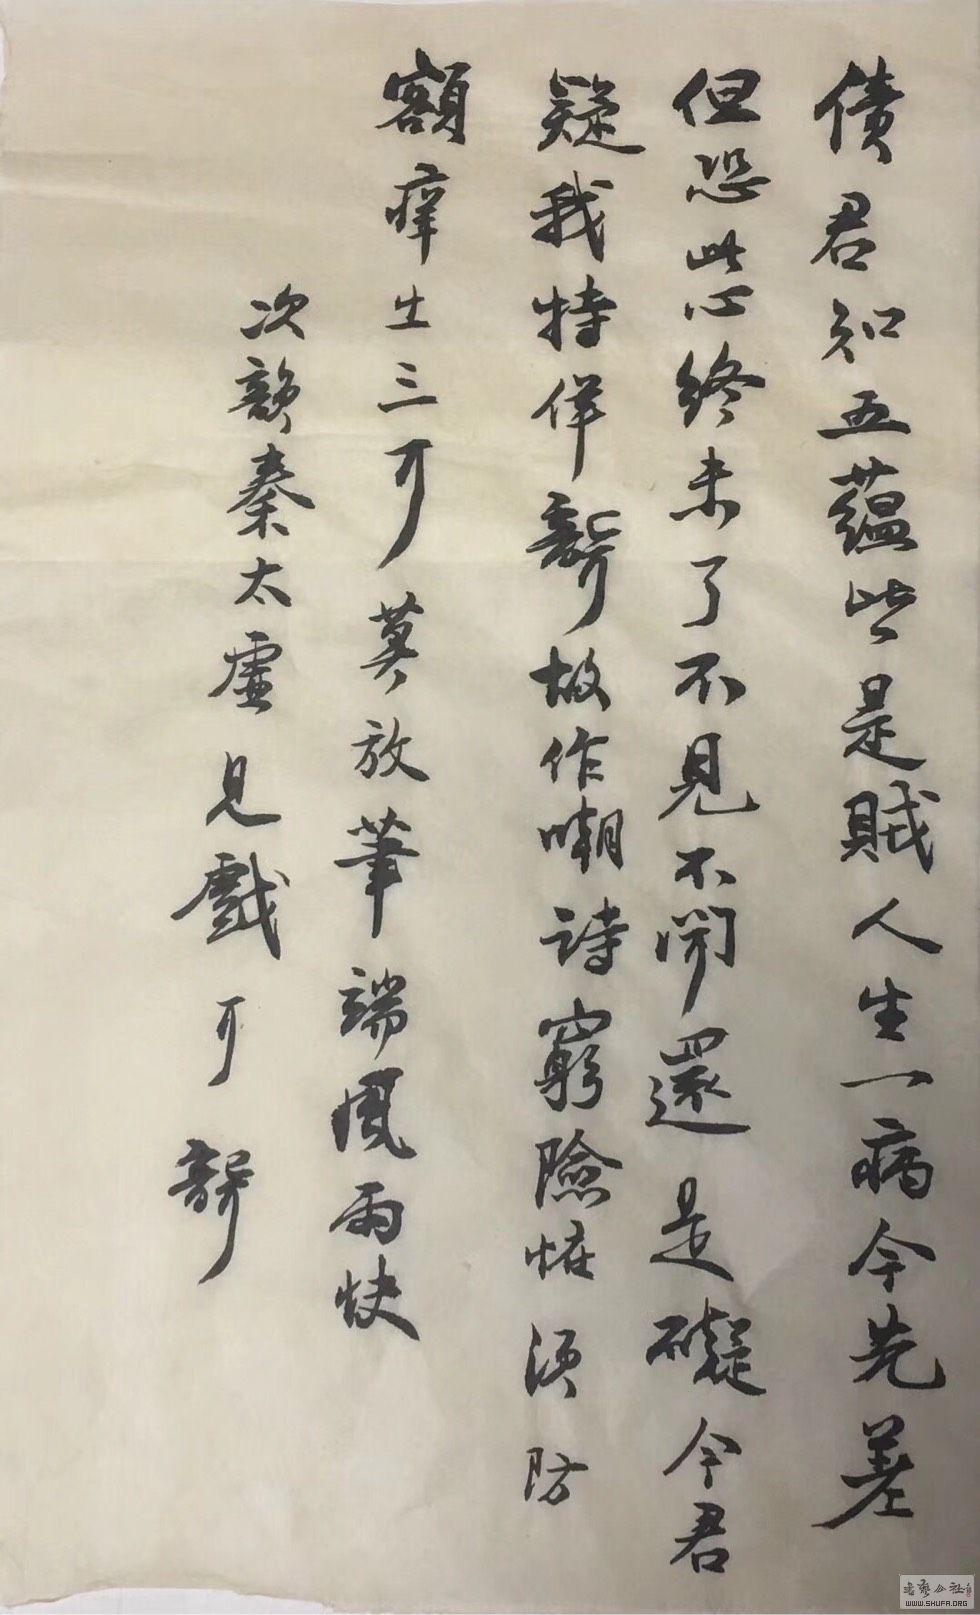 債君知五蘊此是賊人生一病今先差
但恐此心終未了不見不聞還是礙今君
疑我特佯聾故作嘲詩窮險怪須防
額痒出三耳莫放筆端風雨快
次韵秦太虛見戲耳聾
書藝公社
WWW.SHUFA.ORG